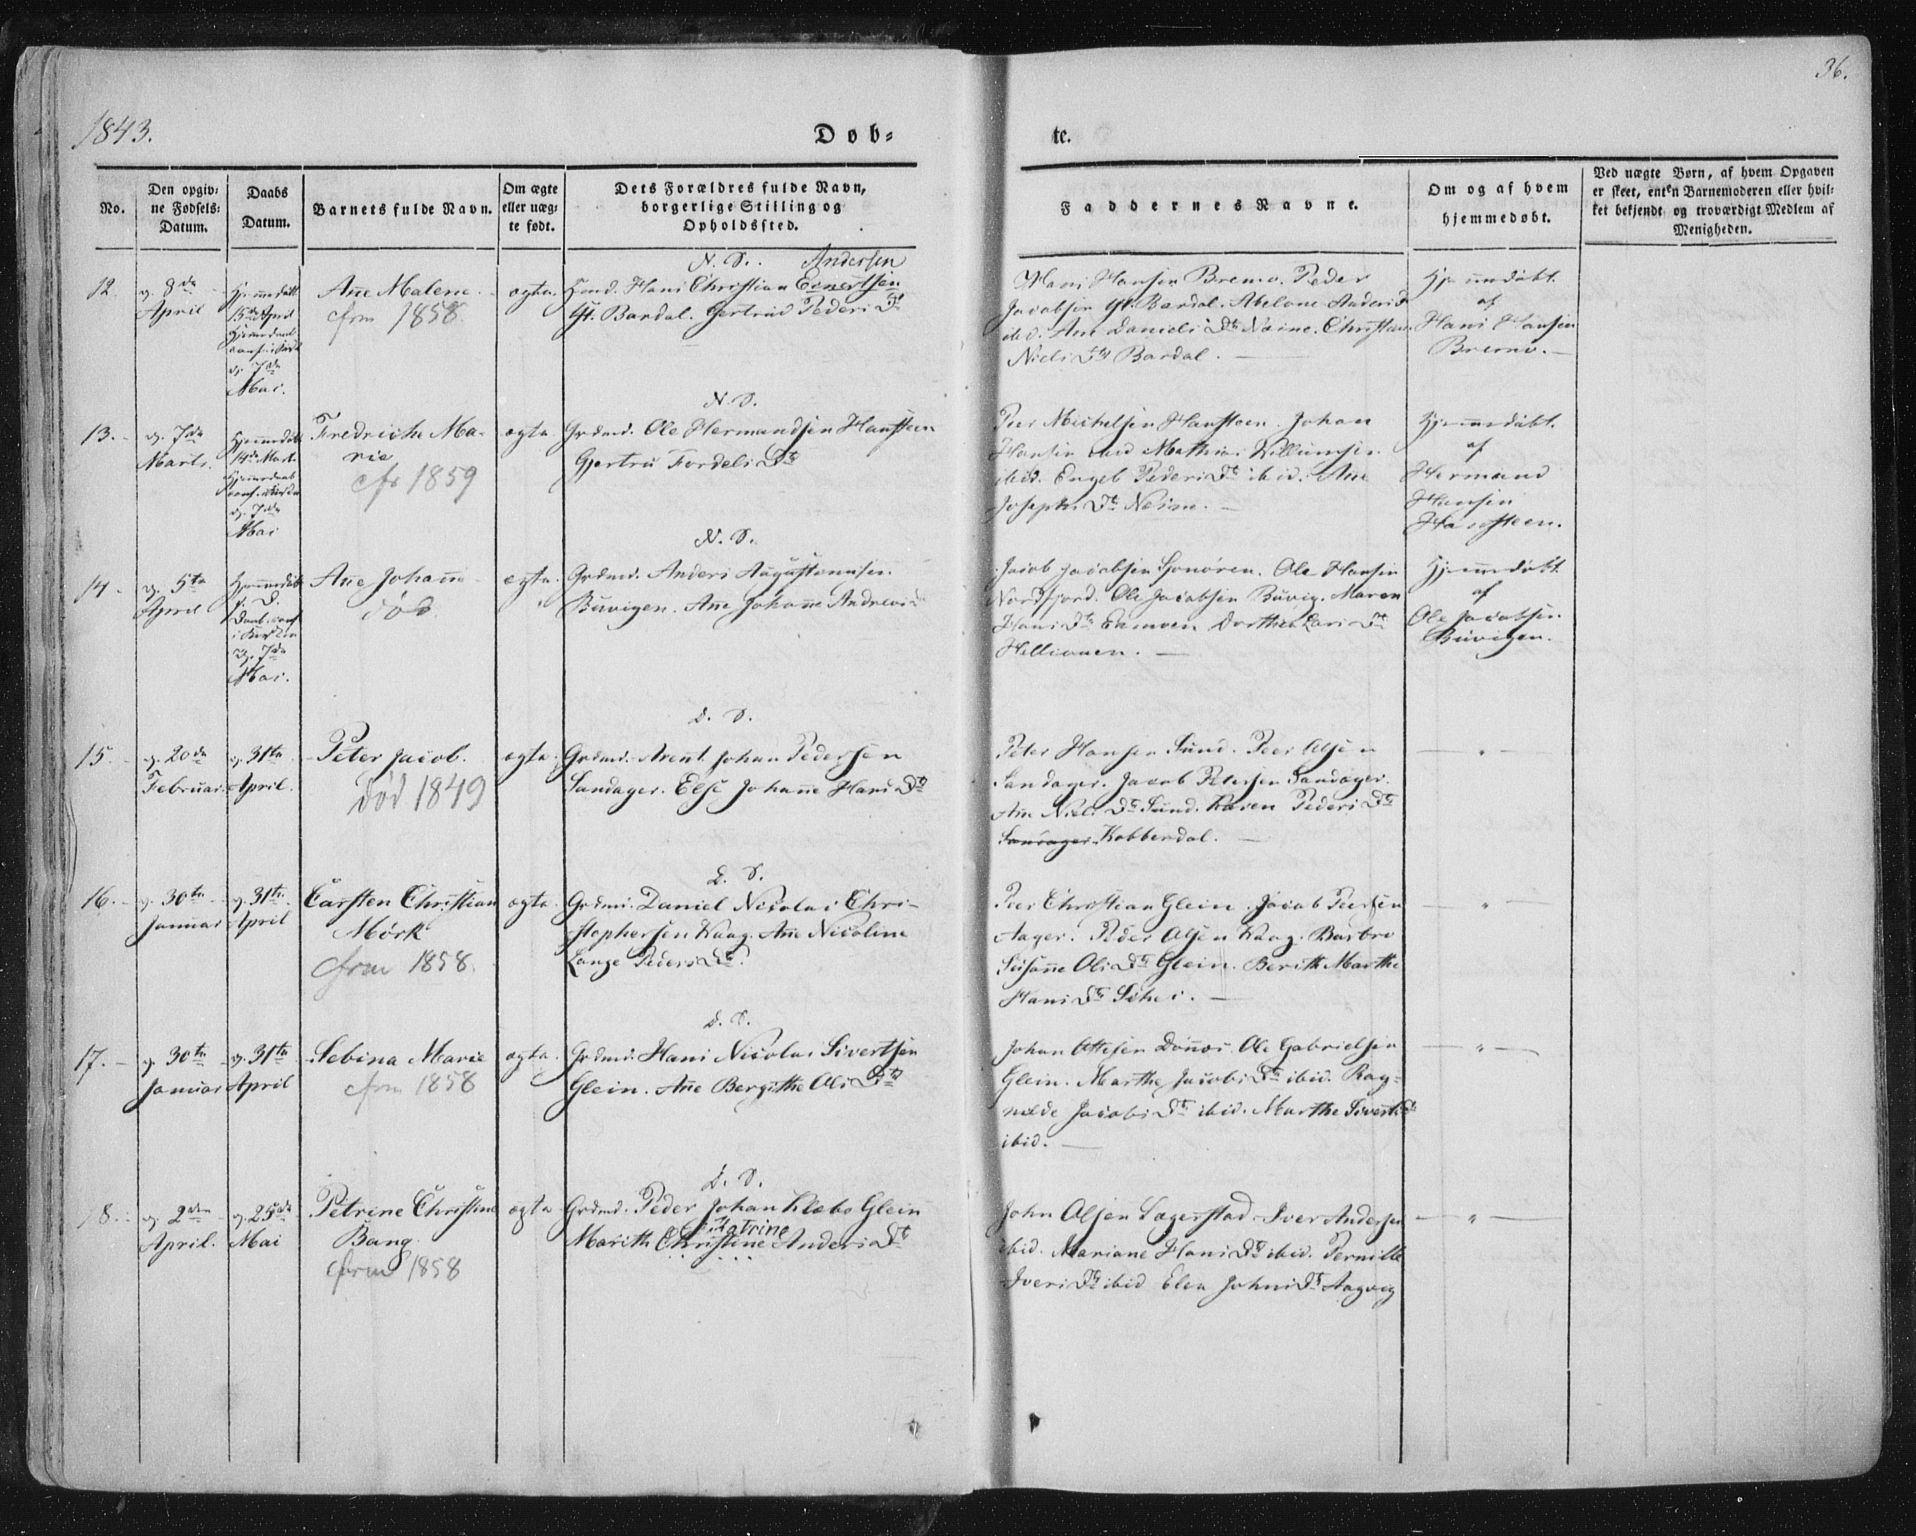 1843.
Døb-
te.
36.
No.
Den opgiv-
ne Fødsels-
Datum.
Daabs
Datum.
Barnets fulde Navn.
Om ægte
eller uæg-
te født.
Dets Forældres fulde Navn,
borgerlige Stilling og
Opholdssted.
Faddernes Navne.
Om og af hvem
hjemmedøbt.
Ved uægte Børn, af hvem Opgaven
er skeet, enten Barnemoderen eller hvil-
ket bekjendt og troværdigt Medlem af
Menigheden.
12.
8de
April
Hjemmedøbt
15de April
7de
Mai.
Ane Malene
cfrm 1858.
ægte
N. S. Andersen
Hans Christian Einertsen
Bardal. Gertrud Peders Dt
Hans Hansen Bremo. Peder
Jacobsen Bardal. Abelone Anders
ibid. Ane Daniels Dtr
Niels Dtr Bardal. —
Hjemmedøbt
af
Hans Hansen
Bremo. —
13.
7de
Marts.
Hjemmedøbt
14de Marts
7de
Mai
Fredrich Ma-
rie
cfr 1859
ægte
N. S.
Grdmd. Ole Hermandsen Hansteen
Gjertru Fordels Dtr
Peer Michelsen Hansteen. Johan
Hansen Mathias Willumsen
ibid. Engel Peders Dt ibid. Ane
Josephs Dt
Hjemmedøbt.
af
Hermand
Hansen
Hansteen.
14.
5te
April
Hjemmedøbt
7de
Mai.
Ane Johanne
død
ægte.
N. S.
Grdmd. Anders Augustinusen
Buvigen. Ane Johanne Andreas
Jacob Jacobsen Ole Hansen
Nordfjord. Ole Jacobsen Buvig. Maren
Hans Dt Dorthea Lars Dt
Hellivuen. —
Hjemmedøbt
af
Ole Jacobsen
Buvigen.
15.
20de
Februar.
31te
April.
Peter Jacob.
død 1849
ægte.
D. S.
Grdmd. Arent Johan Pedersen
Sandager. Else Johanne Hans Dtr
Peter Hansen Sund. Peer Olsen
Sandager. Jacob Petersen Sandager.
Ane Niels Dtr Sund. Karen Peders Dtr
Sandager. Kobberdal. —
— " —
16.
30te
Januar
31te
April
Carsten Christian
Mörk
cfrm 1858.
ægte.
D. S.
Grdmd. Daniel Nicolai Chri-
stophersen Kaag. Ane Nicoline
Lange Peders Dtr.
Peer Christian Glein. Jacob Peersen
Aager. Peder Olsen Kaag. Barbro
Susanne Ols Dtr Glein. Berith Marthe
Hans Dtr —
— " —
17.
30te
Januar
31te
April
Sebina Marie
cfrm 1858
ægte.
D. S.
Grdmd. Hans Nicolai Sivertsen
Glein. Ane Bergithe Ols Dtr
Johan Ottesen Dönnes. Ole Gabrielsen
Glein. Marthe Jacobs Dtr ibid. Rag-
nilde Jacobs Dtr ibid. Marthe Siverts
ibid. —
— " —
18.
2den
April.
25de
Mai
Petrine Christine
Bang.
cfrm 1858
ægte
D. S.
Grdmd. Peder Johan Klæbo Glein
Catrine
Marith Christine Anders Dt
John Olsen Lagerstad. Iver Andersen
ibid. Mariane Hans Dtr ibid. Pernille
Ivers Dtr ibid Elen Johns Dt Aagvig
— " —